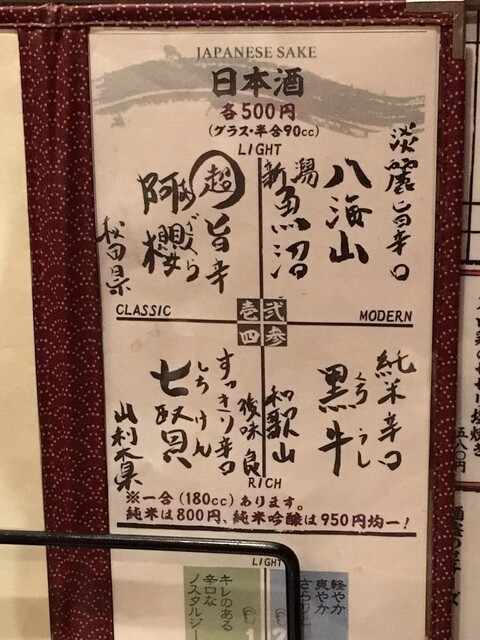 JAPANESE SAKE
日本酒
各500円
(グラス・半合90cc)
LIGHT
淡麗旨辛口
八海山
新潟
魚沼
超旨辛
阿櫻
あざくら
秋田県
CLASSIC
壱 弐
四 参
MODERN
純米辛口
黒牛
くろうし
和歌山
すっきり辛口
後味良
七賢
しちけん
山梨県
RICH
※一合(180cc)あります。
純米は800円、純米吟醸は950円均一!
LIGHT
キレのある
辛口な
ノスタルジー
軽やか
爽やか